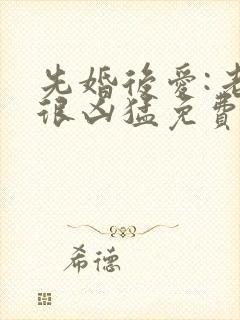 先婚後愛:老
很凶猛免費
希德